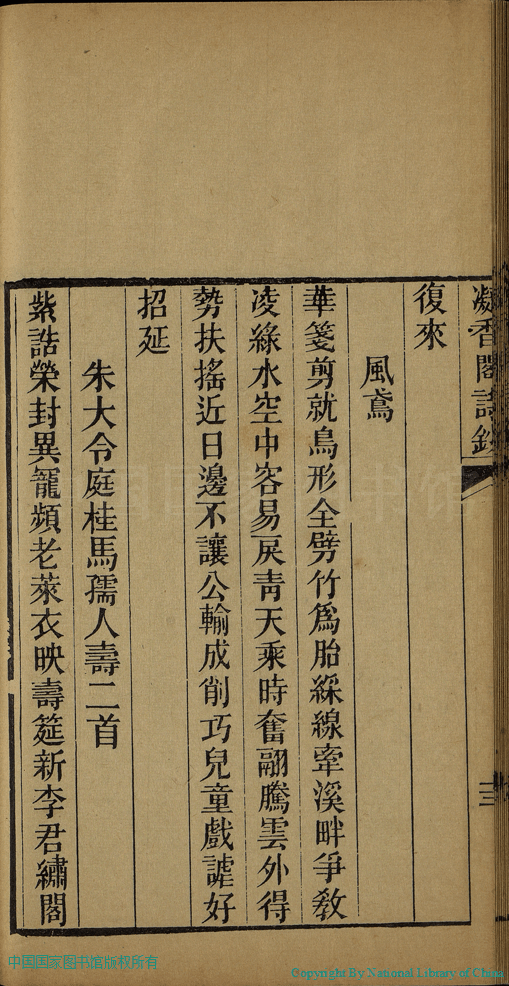 凝香閣詩鈔
復來
風鳶
華箋剪就鳥形全劈竹爲胎綵線牽溪畔爭教
凌綠水空中容易戾靑天乘時奮翮騰雲外得
勢扶搖近日邊不讓公輸成削巧兒童戲謔好
招延
朱大令庭桂馬孺人壽二首
紫誥榮封異寵頻老萊衣映壽筵新李君繡閣
十三
中国国家图书馆版权所有
Copyright By National Library of China